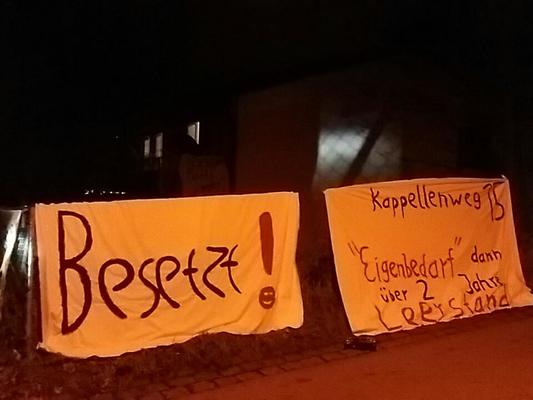 Besetzt!
Kappellenweg 75
"Eigenbedarf" dann
über 2 Jahre
Leerstand